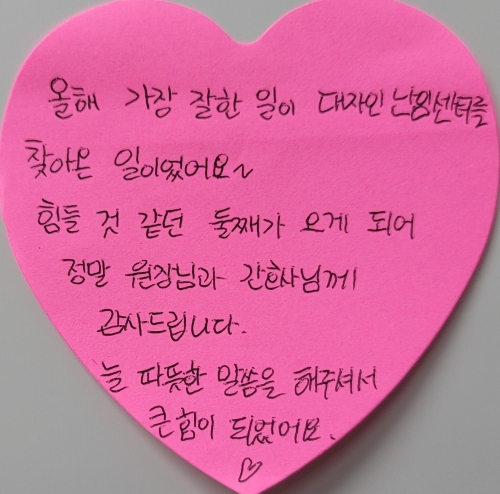 올해 가장 잘한 일이 대자인 난임센터를
찾아온 일이었어요~
힘들 것 같던 둘째가 오게 되어
정말 원장님과 간호사님께
감사드립니다.
늘 따뜻한 말씀을 해주셔서
큰 힘이 되었어요.
♡